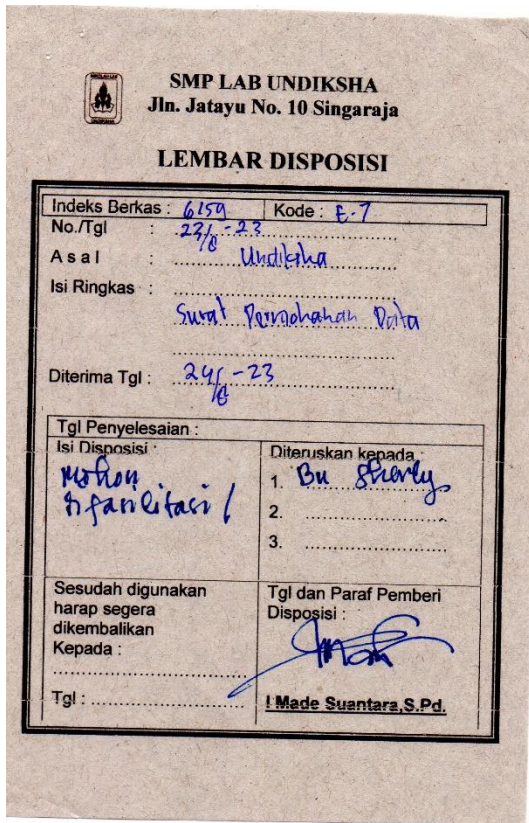 SMP LAB UNDIKSHA
Jln. Jatayu No. 10 Singaraja
LEMBAR DISPOSISI
Indeks Berkas : 6159 Kode : E-7
No./Tgl : 23/8 -23
Asal : Undiksha
Isi Ringkas :
Surat Permohonan Data
Diterima Tgl : 24/8 -23
Tgl Penyelesaian :
Isi Disposisi :
Mohon
difasilitasi /
Diteruskan kepada :
1. Bu Sherly
2.
3.
Sesudah digunakan
harap segera
dikembalikan
Kepada :
Tgl :
Tgl dan Paraf Pemberi
Disposisi :
I Made Suantara,S.Pd.